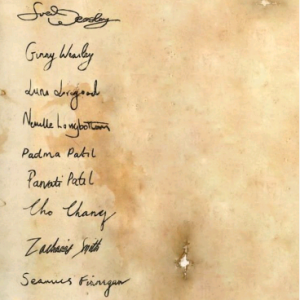 Fred Weasley
Ginny Weasley
Luna Lovegood
Neville Longbottom
Padma Patil
Parvati Patil
Cho Chang
Zacharias Smith
Seamus Finnigan